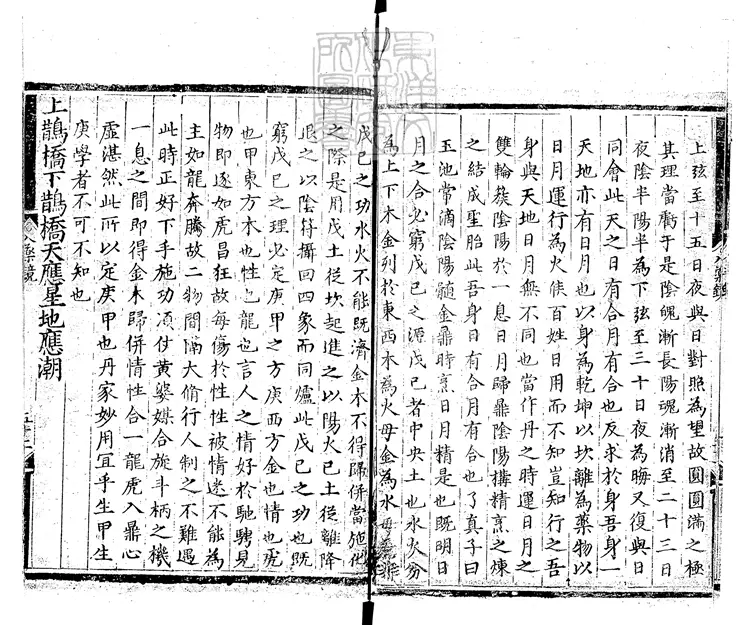 上弦至十五日夜與日對照為望故圓圓滿之極
其理當虧于是陰魄漸長陽魂漸消至二十三日
夜陰半陽半為下弦至三十日夜為晦又復與日
同會此天之日有合月有合也反求於身吾身一
天地亦有日月也以身為乾坤以坎離為藥物以
日月運行為火候百姓日用而不知豈知行之吾
身與天地日月無不同也當作丹之時運日月之
雙輪簇陰陽於一息日月歸鼎陰陽搆精烹之煉
之結成聖胎此吾身日有合月有合也了真子曰
玉池常滴陰陽髓金鼎時烹日月精是也既明日
月之合必窮戊己之源戊己者中央土也水火分
為上下木金列於東西木為火母金為水母若非
戊己之功水火不能既濟金木不得歸併當施化
之際是用戊土從坎起進之以陽火己土從離降
退之以陰符攝回四象而同爐此戊己之功也既
窮戊己之理必定庚甲之方庚西方金也情也虎
也甲東方木也性也龍也言人之情好於馳騁見
物即逐如虎昌狂故每傷於性性被情迷不能為
主如龍奔騰故二物間隔大偷行人制之不難遇
此時正好下手施功須仗黃婆媒合旋斗柄之機
一息之間即得金木歸併情性合一龍虎入鼎心
虛湛然此所以定庚甲也丹家妙用宜乎生甲生
庚學者不可不知也
上鵲橋下鵲橋天應星地應潮
入藥鏡